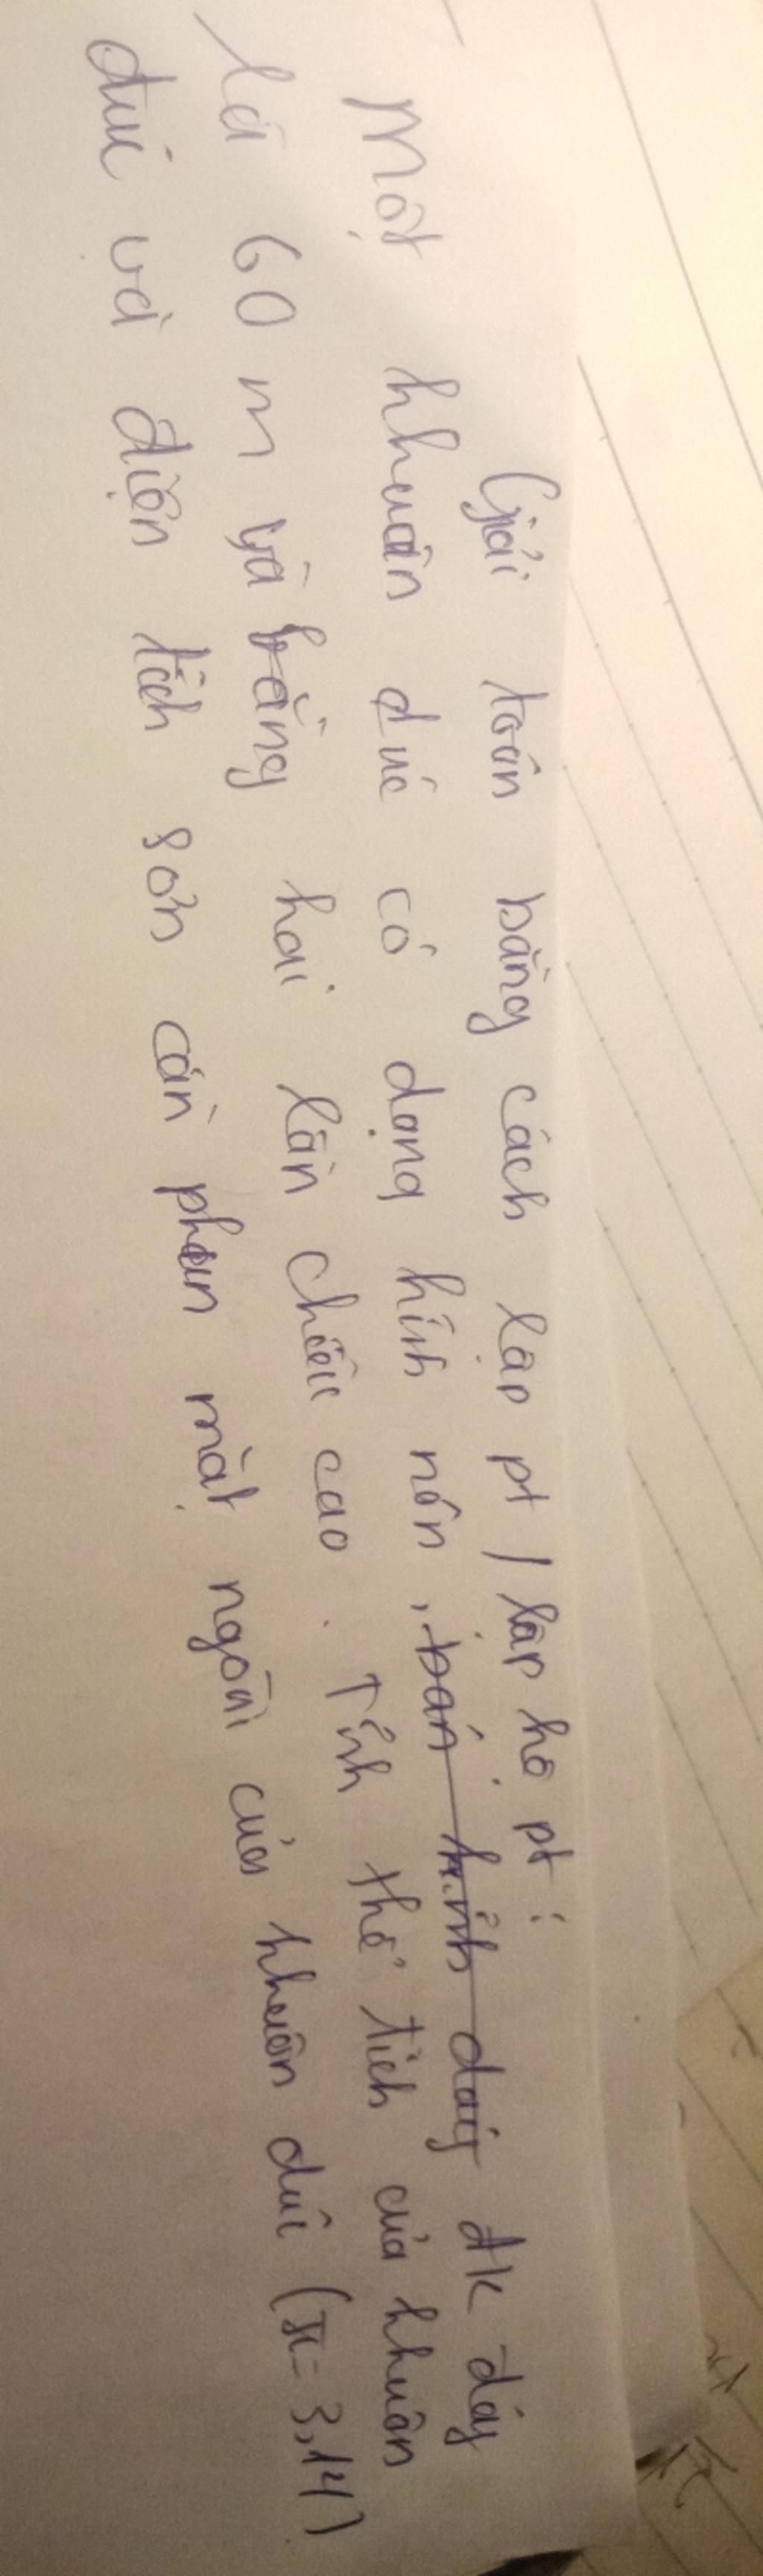 Giải toán bằng cách lập pt / lập hệ pt :
Một khuôn đúc có dạng hình nón, bán kính đáy đk đáy
là 60 m và bằng hai lần chiều cao. Tính thể tích của khuôn
đúc và diện tích sơn cần phan mặt ngoài của khuôn đúc (π = 3,14)